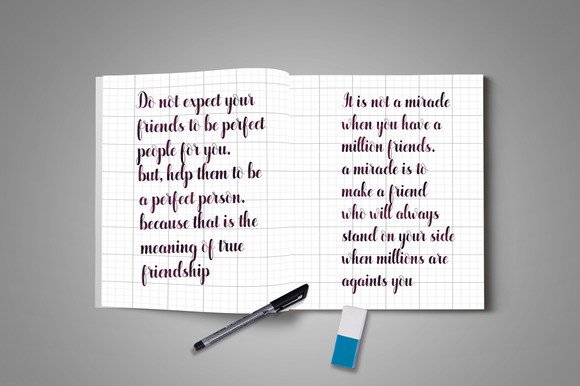 Do not expect your
friends to be perfect
people for you.
but, help them to be
a perfect person.
because that is the
meaning of true
friendship
It is not a miracle
when you have a
million friends.
a miracle is to
make a friend
who will always
stand on your side
when millions are
againts you